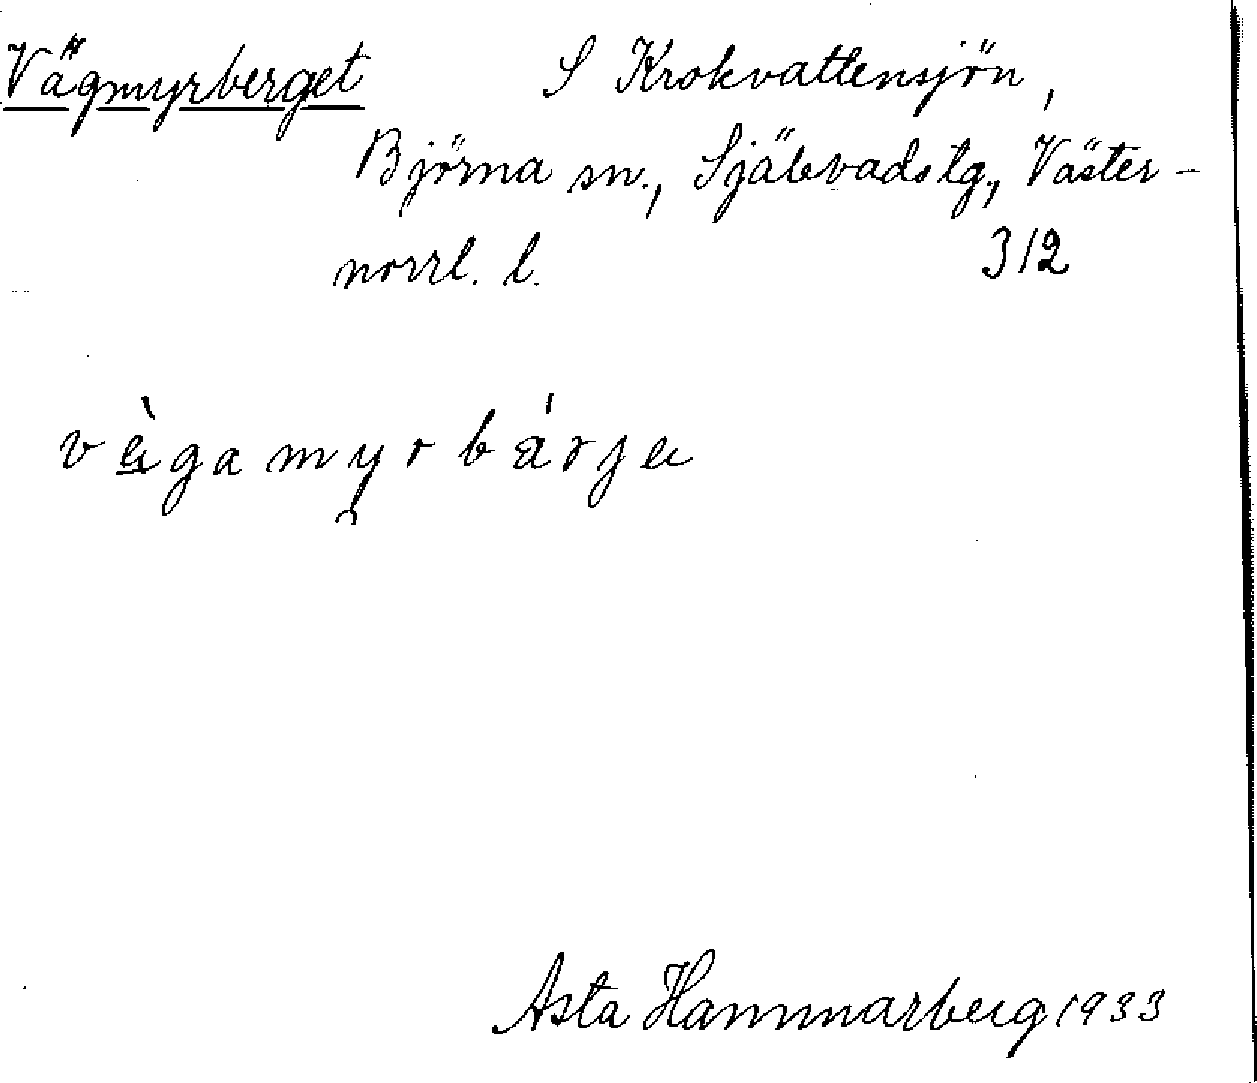 Vägmyrberget S Krokvattensjön,
Björna sn., Själevads tg., Väster-
norrl. l. 312
vä̀gamyrbárje
Asta Hammarberg 1933